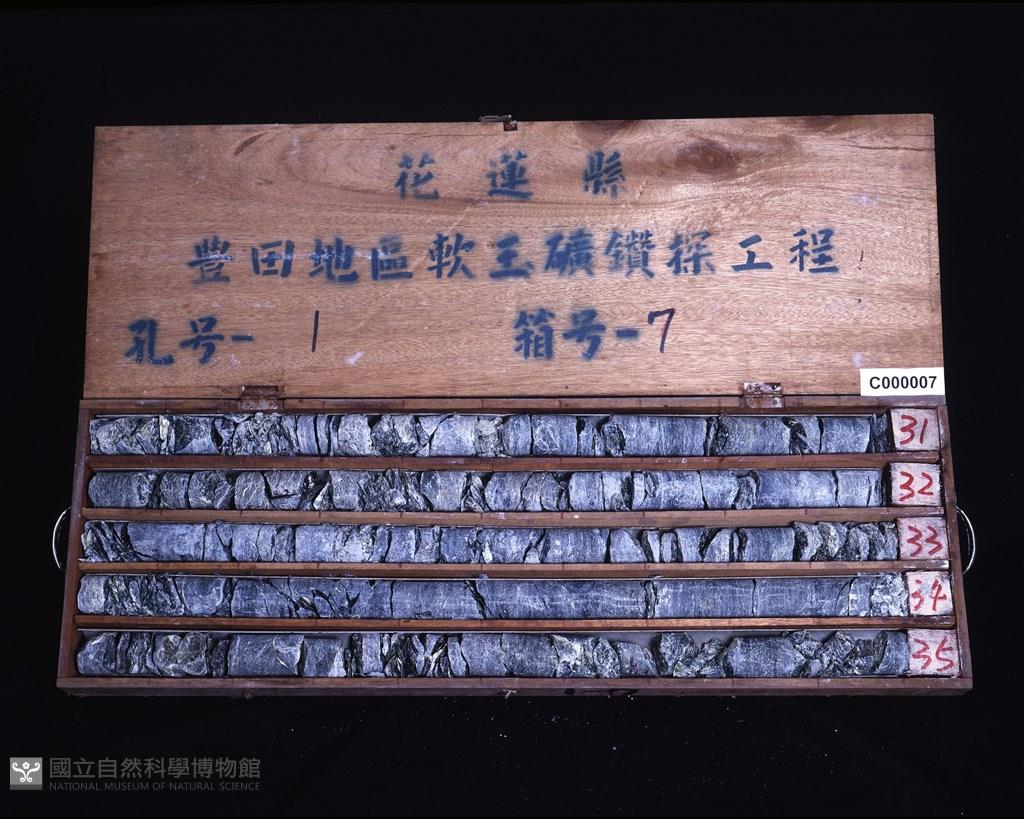 花蓮縣
豐田地區軟玉礦鑽探工程
孔号-1 箱号-7
C000007
31
32
33
34
35
國立自然科學博物館
NATIONAL MUSEUM OF NATURAL SCIENCE